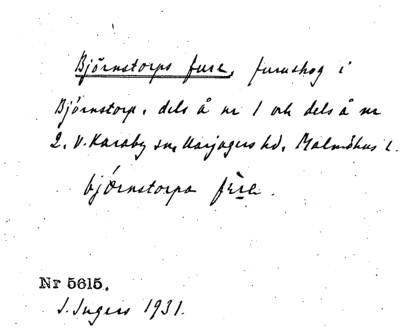 Björnstorps fure, furuskog i
Björnstorp, dels å nr 1 och dels å nr
2, V. Karaby sn, Harjagers hd, Malmöhus l.
björnstorps fure.
Nr 5615.
I. Ingers 1931.